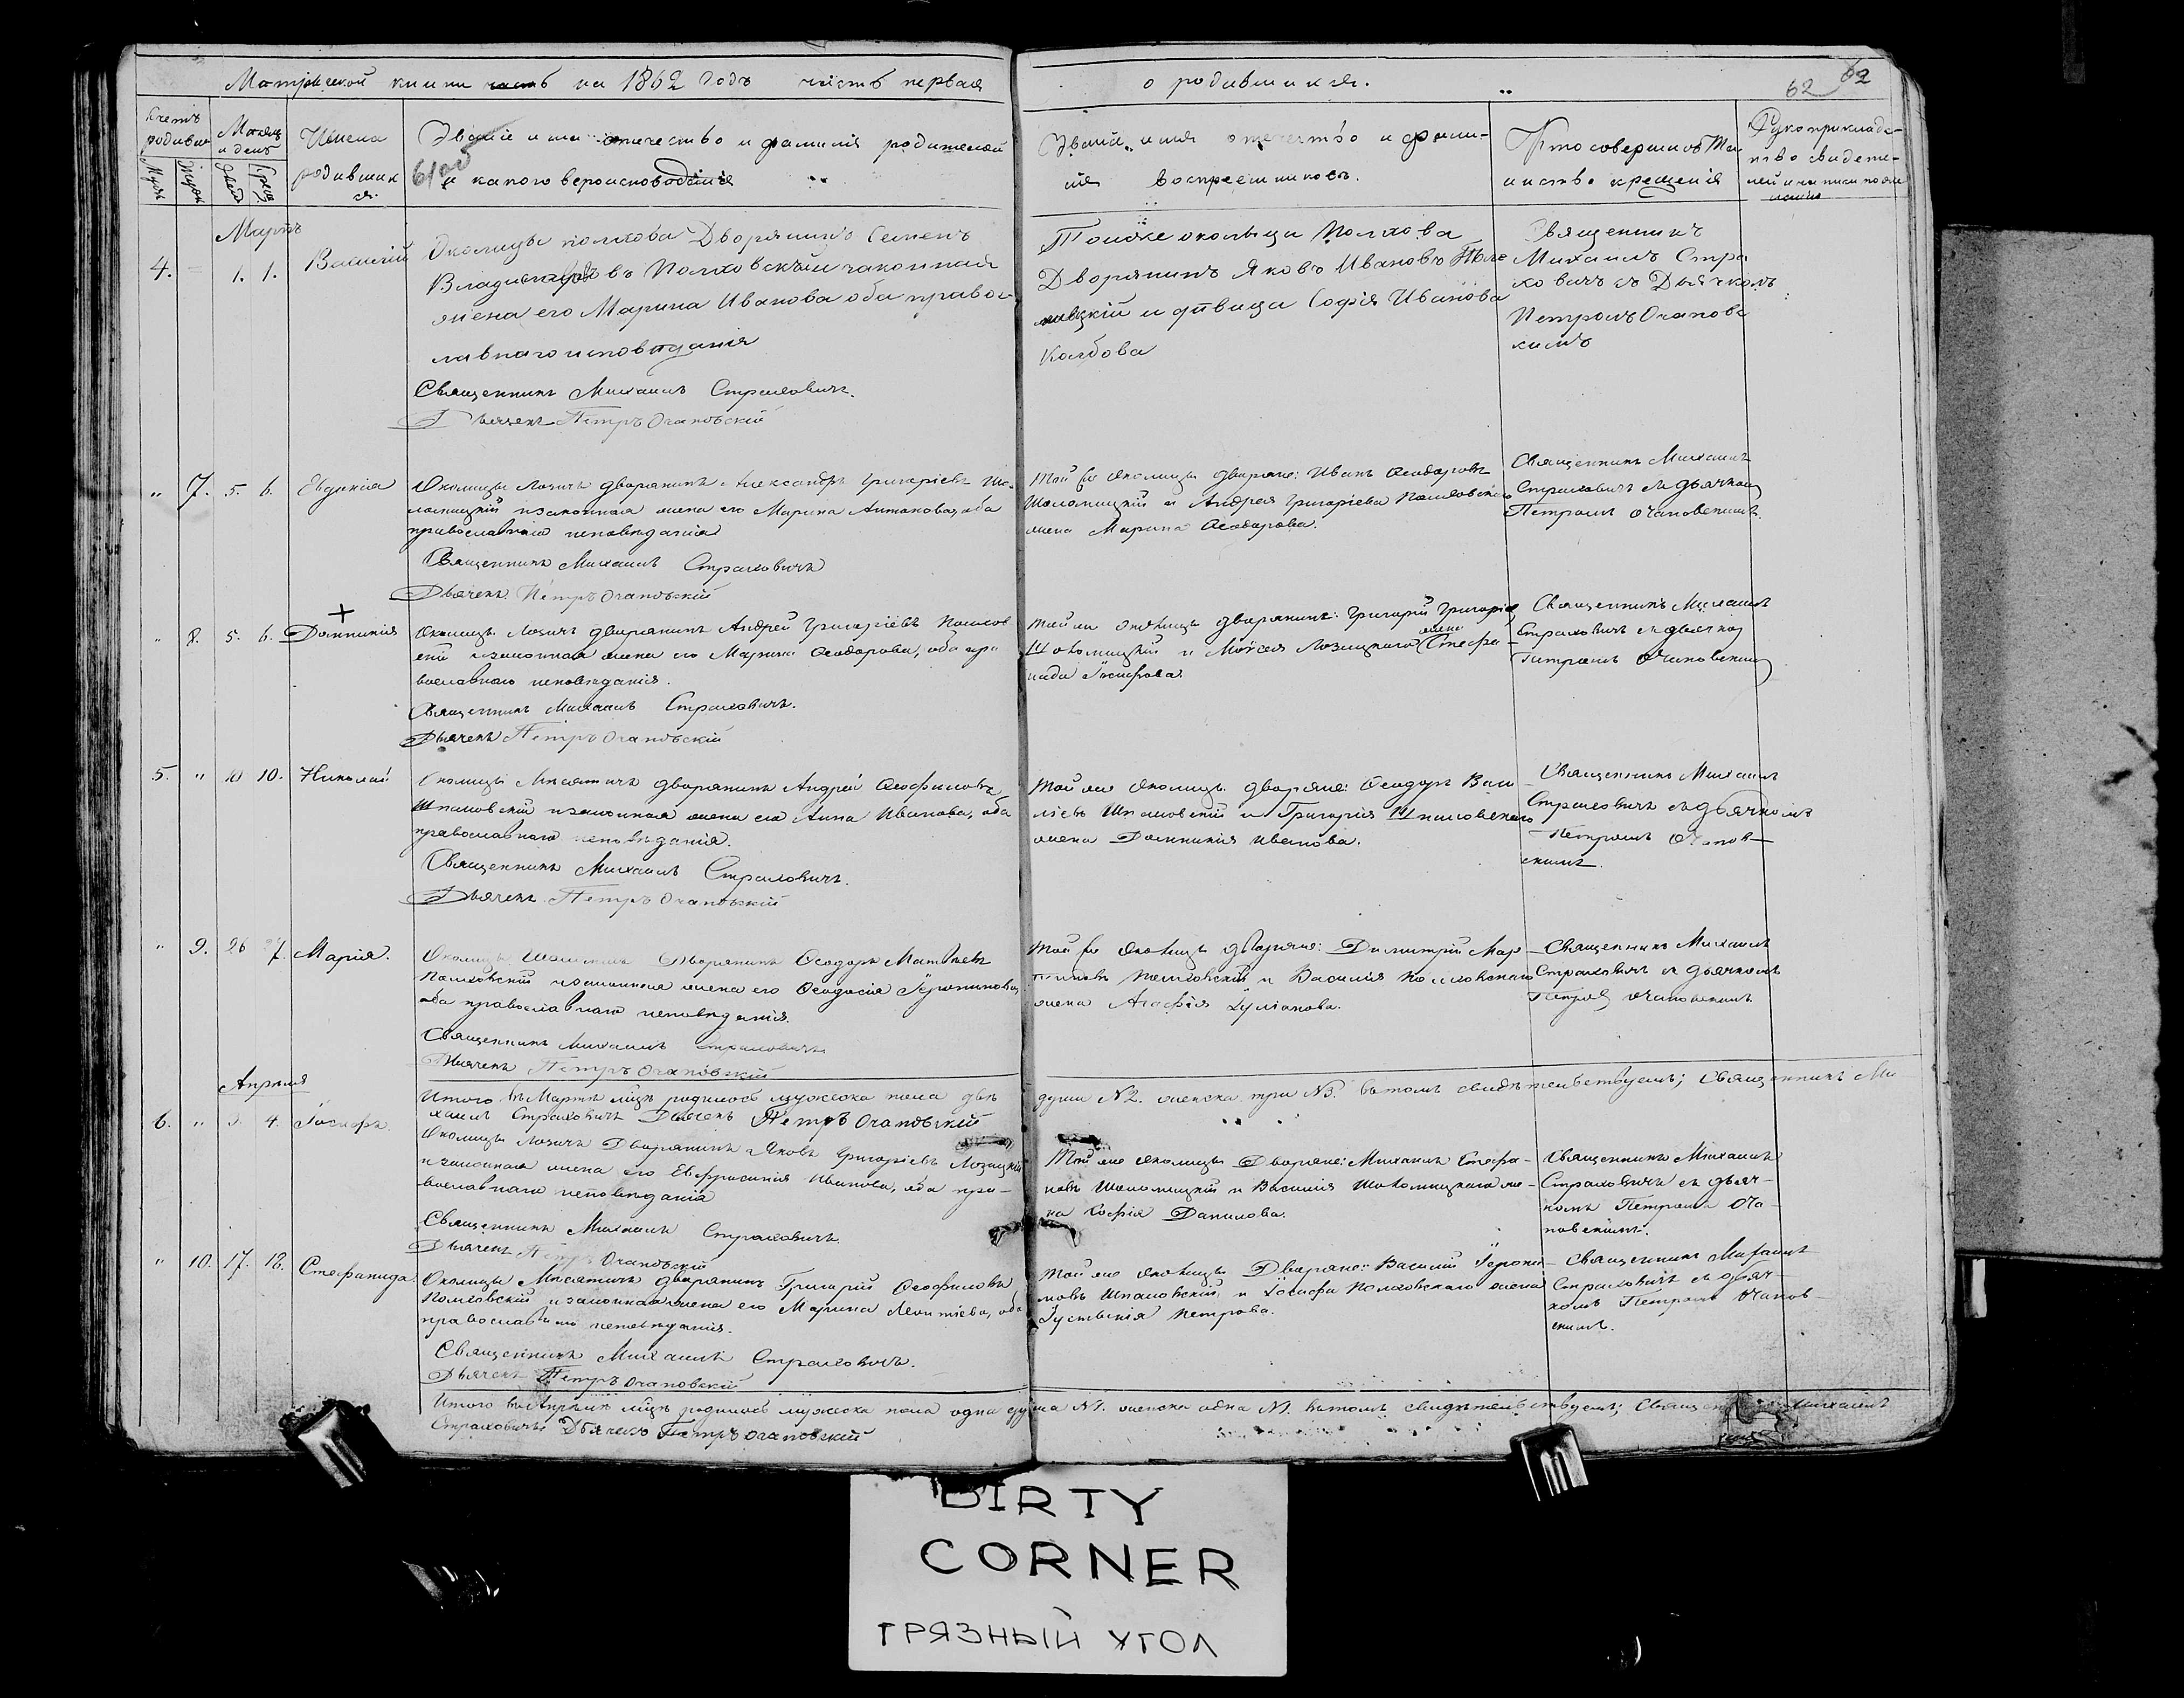 Метрической книги часть на 1862 годъ часть первая о родившихся.
62 62
Счетъ родивш Мѣсяцъ и день Имена родившихся.
Мужск Женск рожд крещ
Званіе имя отечество и фамилія родителей
и какого вероисповѣданія
Званіе, имя отечество и фами-
лія воспреемниковъ.
Кто совершилъ Та
инство крещенія
Рукоприкладс-
тво свидете-
лей
Мартъ
4. 1. 1. Василій
Околицы Полхова Дворянинъ Семенъ
Полховскій и законная
жена его Марина Иванова оба правос-
лавнаго исповѣданія
Священникъ Михаилъ Страховичъ.
Дьячекъ Петръ Очаповскій
Тойже околицы Полхова
Дворянинъ Яковъ Ивановъ
и дѣвица Софія Иванова
Священникъ
Михаилъ Стра
ховичъ съ Дьячкомъ
Петромъ Очаповс
кимъ
" 7. 5. 6. Евдокія
Околицы Лозичъ дворянинъ Александръ Григоріевъ Шо-
ломицкій и законная жена его Марина Антонова, оба
православнаго исповѣданія
Священникъ Михаилъ Страховичъ
Дьячекъ Петръ Очаповскій
Той же околицы дворяне: Иванъ Ѳеодоровъ
Шоломицкій и Андрея Григоріева Полховскаго
жена Марина Ѳеодорова.
Священникъ Михаилъ
Страховичъ съ дьячком
Петромъ Очаповскимъ.
" 8. 5. 6. Домникія
Околицы Лозичъ дворянинъ Андрей Григоріевъ Полхов
скій и законная жена его Марина Ѳеодорова, оба пра
вославнаго исповѣданія.
Священникъ Михаилъ Страховичъ.
Дьячекъ Петръ Очаповскій
Той же околицы дворянинъ: Григорій Григоріев
Шоломицкій и Моисея Лозицкаго жена Стефа-
нида Іосифова.
Священникъ Михаилъ
Страховичъ съ дьячком
Петромъ Очаповским
5. " 10 10. Николай
Околицы Мисятичъ дворянинъ Андрей Ѳеофиловъ
Шпаковскій и законная жена его Анна Иванова, оба
православнаго исповѣданія.
Священникъ Михаилъ Страховичъ.
Дьячекъ Петръ Очаповскій
Той же околицы дворяне: Ѳеодоръ Васи-
ліевъ Шпаковскій и Григорія Шпаковскаго
жена Домникія Иванова.
Священникъ Михаилъ
Страховичъ съ дьячкомъ
Петромъ Очапов-
скимъ.
" 9. 26 Марія.
Околицы Дворянинъ Ѳеодоръ Матѳіевъ
Полховскій и законная жена его Ѳеодосія Іеронимова,
оба православнаго исповѣданія.
Священникъ Михаилъ Страховичъ
Дьячекъ Петръ Очаповскій
Той же околицы дворяне: Димитрій Мар-
тиновъ Полховскій и Василія Полховскаго
жена Агафія Іуліанова.
Священникъ Михаилъ
Страховичъ съ дьячкомъ
Петром Очаповскимъ
Итого въ Мартѣ мцѣ родилось мужеска пола двѣ души №2. женска три №3. Въ томъ свидѣтельствуемъ; Священникъ Ми
хаилъ Страховичъ Дьячекъ Петръ Очаповскій
Апрѣля
6. " 3. 4. Іосифъ.
Околицы Лозичъ Дворянинъ Яковъ Григоріевъ Лозицкій
и законная жена его Евфросинія Иванова, оба пра-
вославнаго исповѣданія
Священникъ Михаилъ Страховичъ.
Дьячекъ Петръ Очаповскій
Той же околицы Дворяне: Михаилъ Стефа-
новъ Шоломицкій и Василія Шоломицкаго же-
на Софія Данилова.
Священникъ Михаилъ
Страховичъ съ дьяч-
комъ Петромъ Оча-
повскимъ.
" 10. 17. 18. Стефанида.
Околицы Мисятичъ дворянинъ Григорій Ѳеофиловъ
Полховскій и законная жена его Марина Леонтіева, оба
православнаго исповѣданія.
Священникъ Михаилъ Страховичъ.
Дьячекъ Петръ Очаповскій
Той же околицы Дворяне: Василій Іерони-
мовъ Шпаковскій и Іосифа Полховскаго жена
Іустинія Петрова.
Священникъ Михаилъ
Страховичъ съ дьяч-
комъ Петромъ Очапов-
скимъ.
Итого въ Апрѣлѣ мцѣ родилось мужеска пола одна душа №1. женска одна №1. Въ томъ свидѣтельствуемъ; Священникъ Михаилъ
Страховичъ Дьячекъ Петръ Очаповскій
DIRTY
CORNER
ГРЯЗНЫЙ УГОЛ